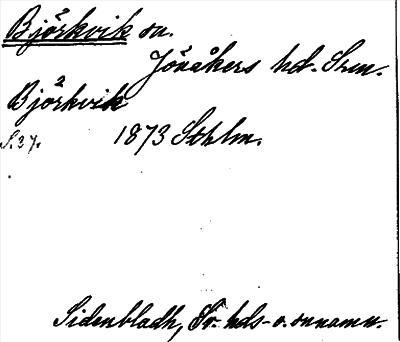 Björkvik sn.
Jönåkers hd. Srm.
2
Björkvik
S. 37. 1873 Sthlm.
Sidenbladh, Sv. hds- o. snnamn.